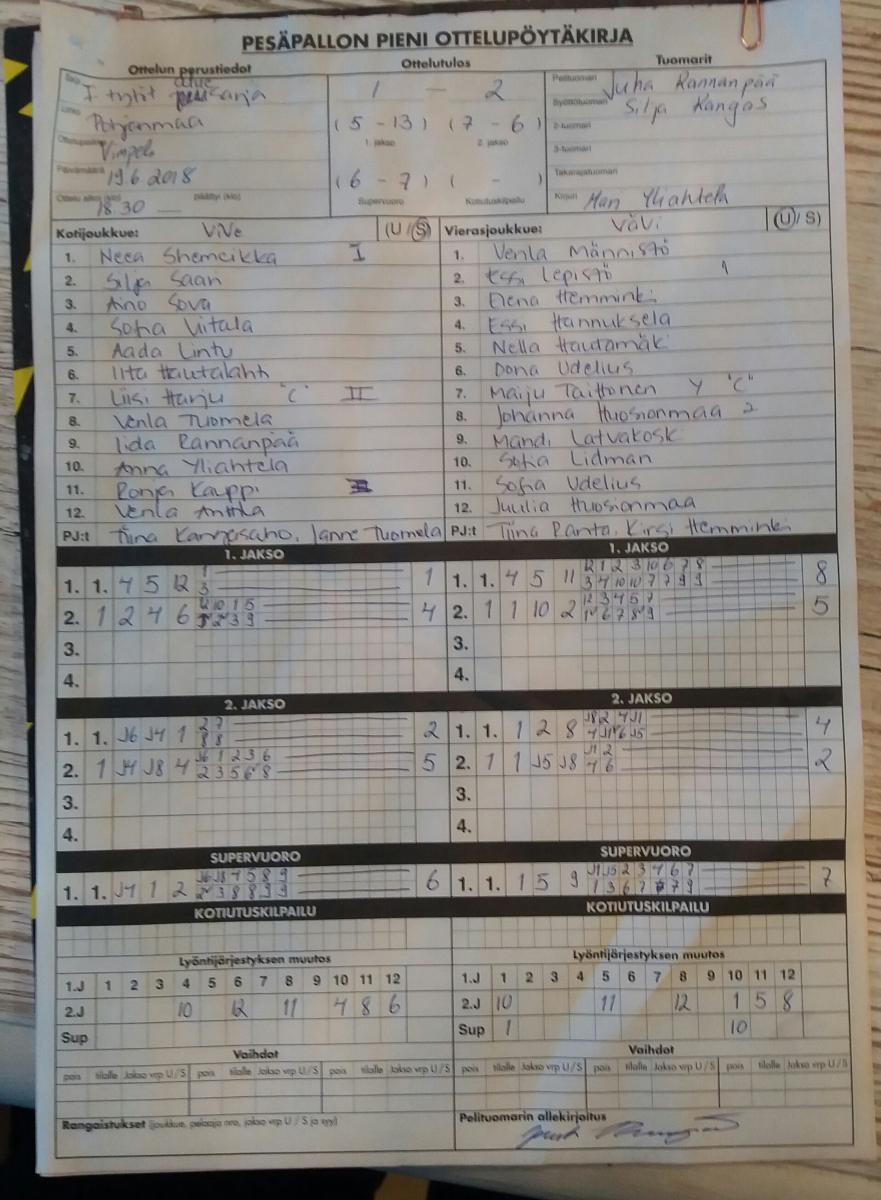 PESÄPALLON PIENI OTTELUPÖYTÄKIRJA
Ottelun perustiedot
Ottelutulos
Tuomarit
tytöt aluesarja
1 - 2
Pelituomari Juha Rannanpää
Pohjanmaa
Syöttötuomari Silja Kangas
(5 - 13) (7 - 6)
2-tuomari
Vimpeli
1. jakso 2. jakso
3-tuomari
Päivämäärä 19.6.2018
(6 - 7) ( - )
Takarajatuomari
18.30 päättyi (klo)
Supervuoro Kotiutuskilpailu
Kirjuri Mari Yliahtela
Kotijoukkue: ViVe (U/S)
Vierasjoukkue: VäVi (U/S)
1. Neea Shemeikka I
1. Venla Männistö
2. Silja Saari
2. Essi Lepistö 1
3. Aino Sova
3. Elena Hemminki
4. Sofia Viitala
4. Essi Hannuksela
5. Aada Lintu
5. Nella Hautamäki
6. Iita Hautalahti
6. Dona Udelius
7. Liisi Harju "C" II
7. Maiju Taittonen Y "C"
8. Venla Tuomela
8. Johanna Huosionmaa 2
9. Iida Rannanpää
9. Mandi Latvakoski
10. Anna Yliahtela
10. Sofia Lidman
11. Ronja Kauppi
11. Sofia Udelius
12. Venla Anttila
12. Juulia Huosionmaa
PJ:t Tiina Kangassaho, Janne Tuomela
PJ:t Tiina Ranta, Kirsi Hemminki
1. JAKSO
1. JAKSO
1. 1. 4 5 12 1 3 1
1. 1. 4 5 11 12 1 2 3 10 6 7 8 3 4 10 10 7 7 9 9 8
2. 1 2 4 6 12 10 1 5 2 3 9 4
2. 1 1 10 2 12 3 4 5 7 1 6 7 8 9 5
3.
3.
4.
4.
2. JAKSO
2. JAKSO
1. 1. J6 J4 1 2 7 8 8 2
1. 1. 1 2 8 J8 2 4 J1 4 J1 6 J5 4
2. 1 J4 J8 4 J6 1 2 3 6 2 3 5 6 8 5
2. 1 1 J5 J8 J1 2 4 6 2
3.
3.
4.
4.
SUPERVUORO
SUPERVUORO
1. 1. J4 1 2 J6 J8 4 5 8 9 2 3 8 8 9 9 6
1. 1. 1 5 9 J1 J5 2 3 4 6 7 1 3 6 7 7 9 7
KOTIUTUSKILPAILU
KOTIUTUSKILPAILU
Lyöntijärjestyksen muutos
Lyöntijärjestyksen muutos
1.J 1 2 3 4 5 6 7 8 9 10 11 12
1.J 1 2 3 4 5 6 7 8 9 10 11 12
2.J 10 12 11 4 8 6
2.J 10 11 12 1 5 8
Sup
Sup 1 10
Vaihdot
Vaihdot
pois tilalle Jakso vrp U/S pois tilalle Jakso vrp U/S pois tilalle Jakso vrp U/S
pois tilalle Jakso vrp U/S pois tilalle Jakso vrp U/S pois tilalle Jakso vrp U/S
Rangaistukset (joukkue, pelaaja nro, jakso vrp U / S ja syy)
Pelituomarin allekirjoitus